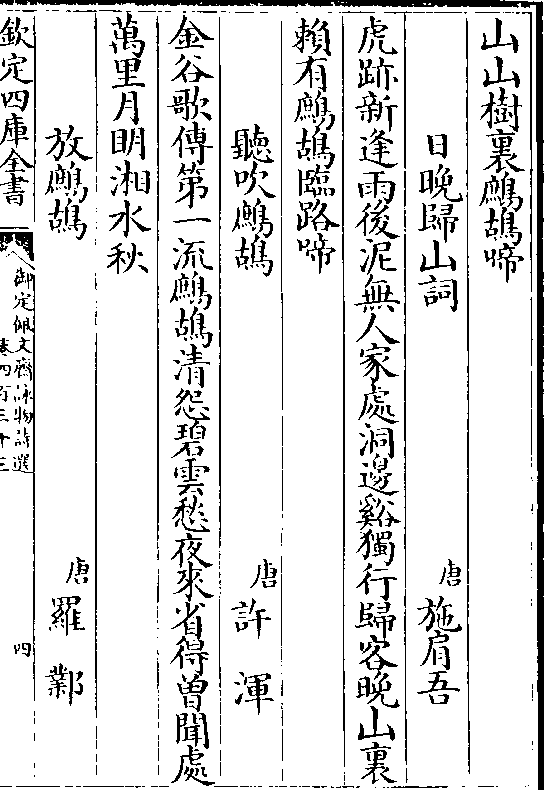 山山樹裏鷓鴣啼
日晚歸山詞 唐 施肩吾
虎跡新逢雨後泥無人家處洞邊谿獨行歸客晚山裏
賴有鷓鴣臨路啼
聽吹鷓鴣 唐 許渾
金谷歌傳第一流鷓鴣清怨碧雲愁夜來省得曾聞處
萬里月明湘水秋
放鷓鴣 唐 羅鄴
欽定四庫全書
御定佩文齋詠物詩選
卷四百三十三
四